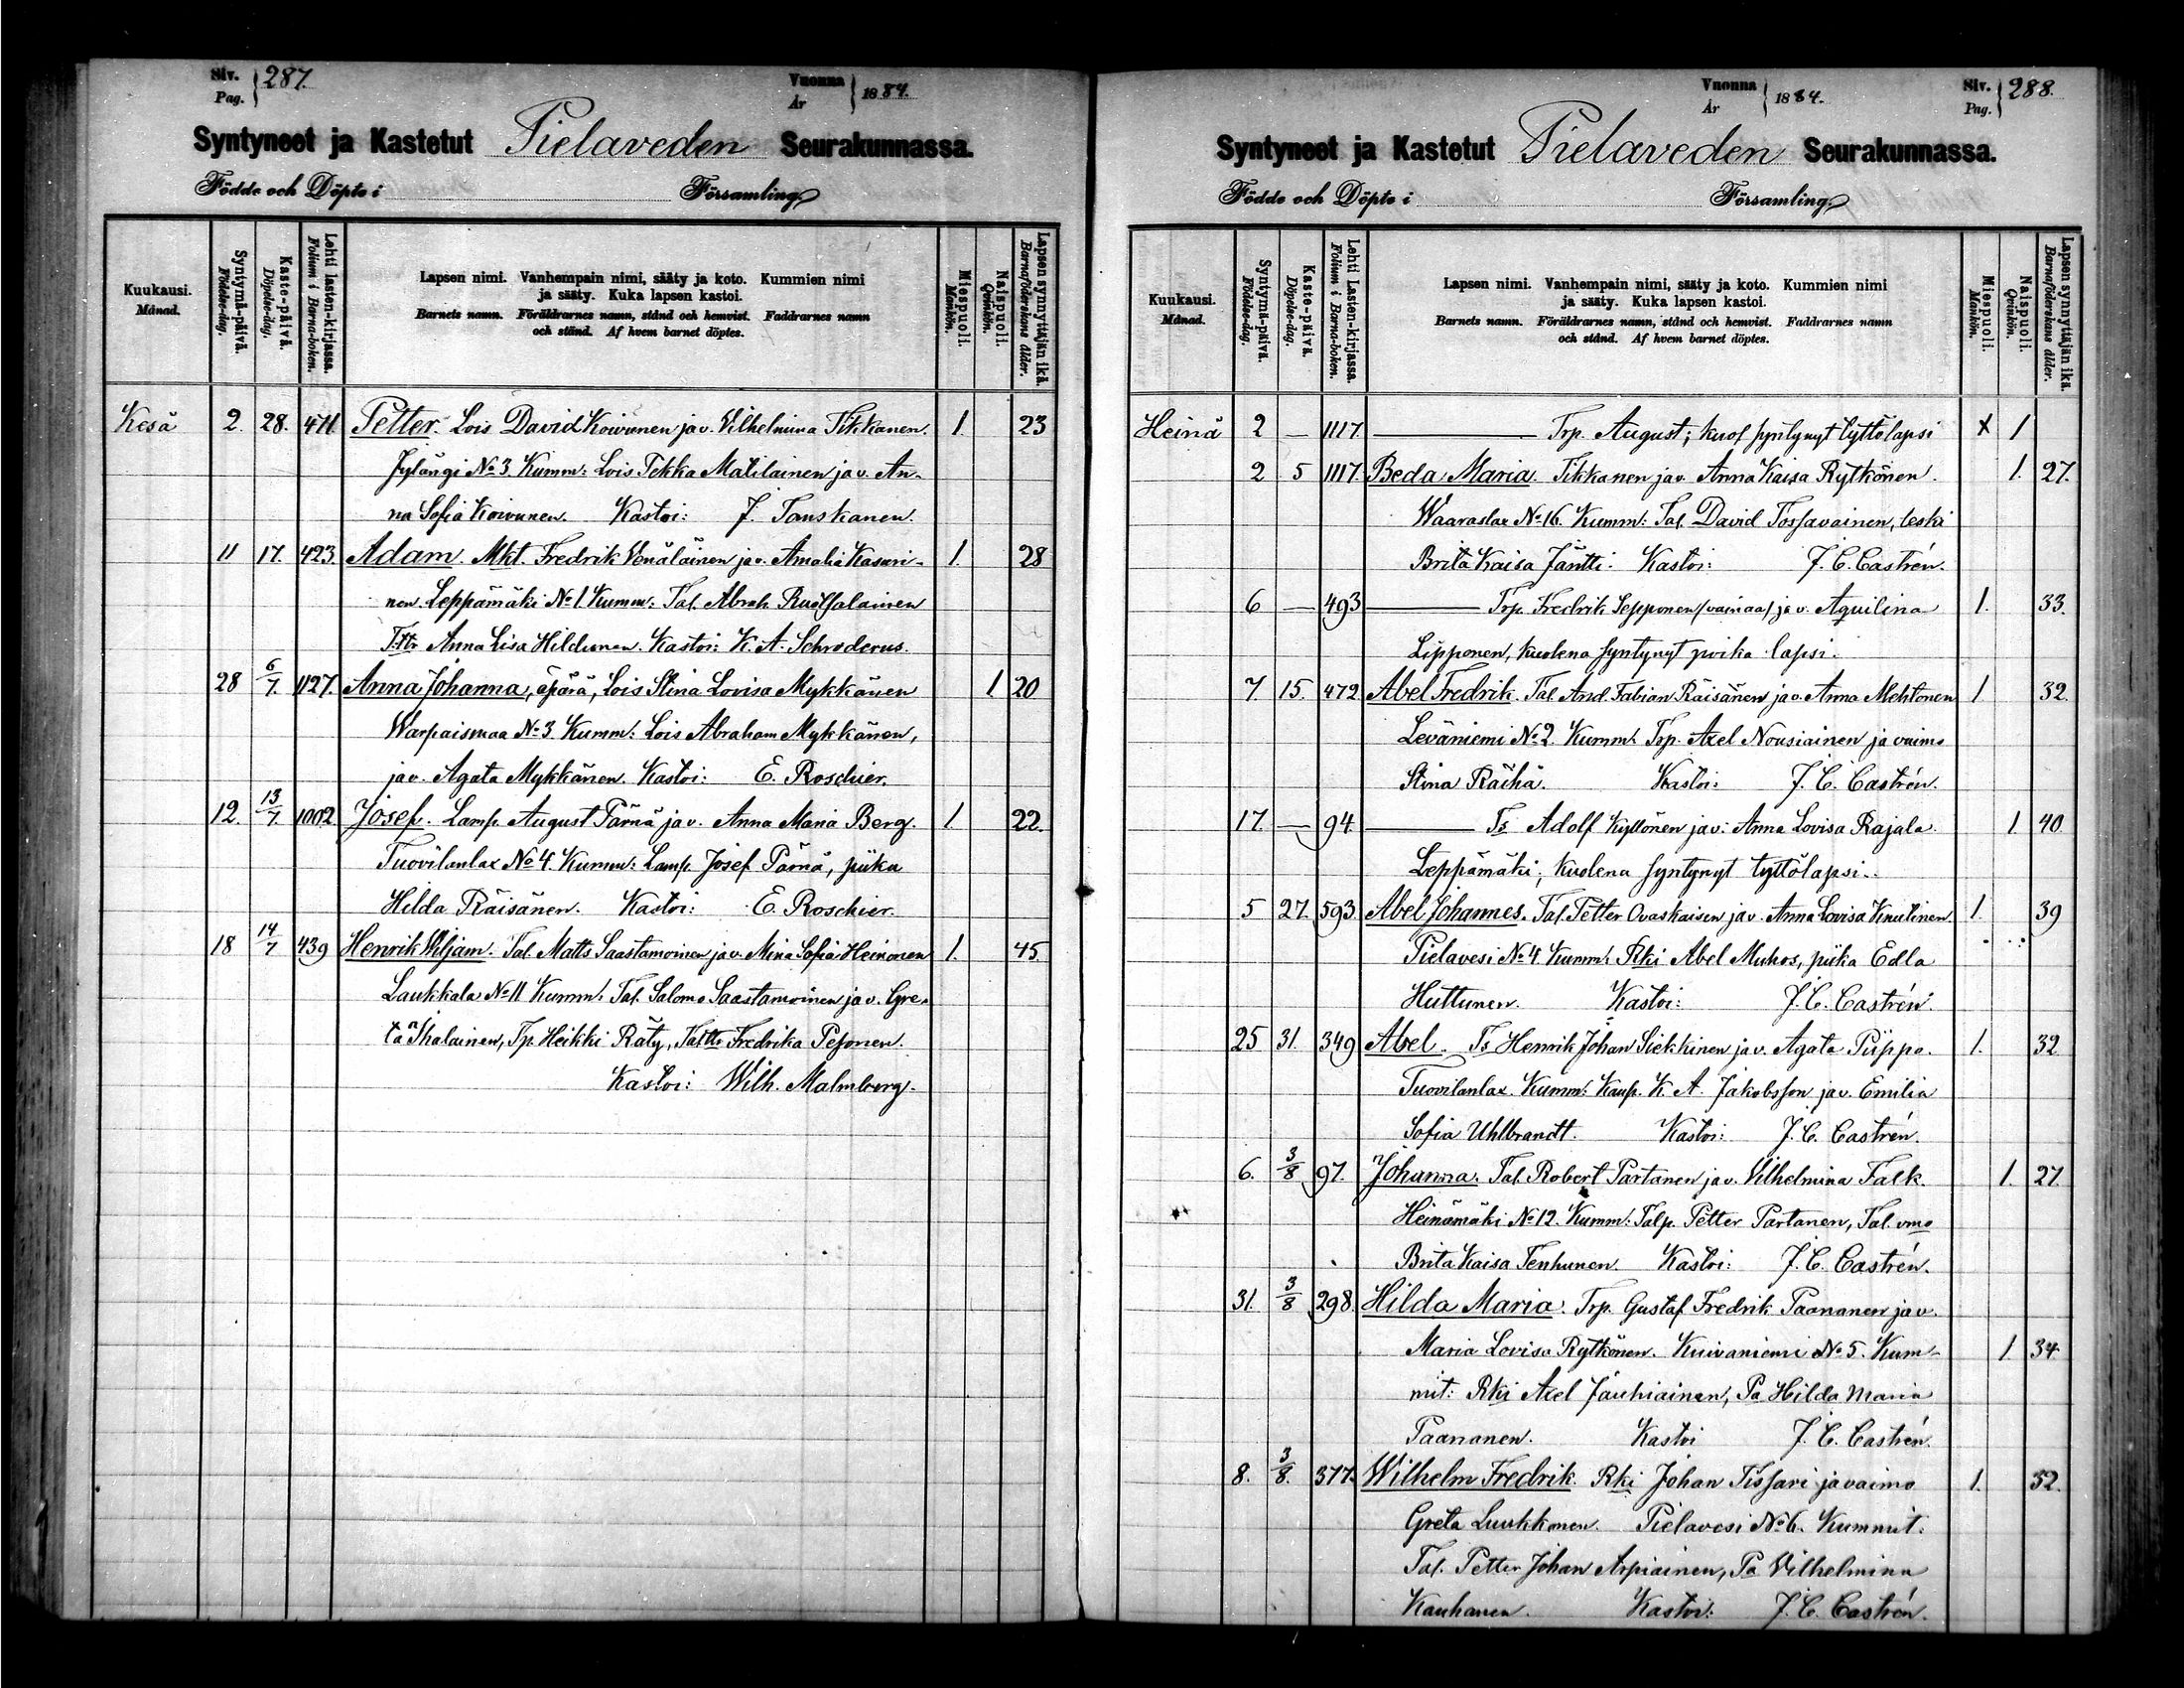 Siv. Pag. 287. Vuonna År 1884.
Syntyneet ja Kastetut Pielaveden Seurakunnassa.
Födde och Döpte i Församling
Kuukausi. Månad. Syntymä-päivä. Födelse-dag. Kaste-päivä. Döpelse-dag. Lehti lasten-kirjassa. Folium i Barna-boken. Lapsen nimi. Vanhempain nimi, sääty ja koto. Kummien nimi ja sääty. Kuka lapsen kastoi. Barnets namn. Föräldrarnes namn, stånd och hemvist. Faddrarnes namn och stånd. Af hvem barnet döptes. Miespuoli. Mankön. Naispuoli. Qvinkön. Lapsen synnyttäjän ikä. Barnaföderskans ålder.
Kesä 2. 28. 471. Petter. Lois David Koivunen ja v. Vilhelmina Tikkanen. 1. 23
Jylängi No 3. Kumm: Lois Pekka Matilainen ja v. An-
na Sofia Koivunen. Kastoi: J. Tanskanen.
11 17. 423. Adam. Mkt. Fredrik Venäläinen ja v. Amalia Kasuri- 1. 28
nen. Leppämäki No 1. Kumm: Tal. Abrah Ruotsalainen
T:ttr Anna Lisa Hildunen. Kastoi: K. A. Schroderus.
28 6/7. 1127. Anna Johanna, äpärä, Lois Stina Lovisa Mykkänen 1. 20
Warpaismaa No 3. Kumm: Lois Abraham Mykkänen,
ja v. Agata Mykkänen. Kastoi: E. Roschier.
12. 13/7. 1002. Josef. Lamp. August Pärnä ja v. Anna Maria Berg. 1. 22.
Tuovilanlax No 4. Kumm: Lamp. Josef Pärnä, piika
Hilda Räisänen. Kastoi: E. Roschier.
18 14/7 439 Henrik Viljam. Tal. Matts Saastamoinen ja v. Mina Sofia Heinonen 1. 45
Laukkala No 11 Kumm: Tal. Salomo Saastamoinen ja v. Gre-
ta Ikalainen, Tp. Heikki Räty, Tal ttr Fredrika Pesonen.
Kastoi: Wilh. Malmberg.
Vuonna År 1884. Siv. Pag. 288.
Syntyneet ja Kastetut Pielaveden Seurakunnassa.
Födde och Döpte i Församling
Kuukausi. Månad. Syntymä-päivä. Födelse-dag. Kaste-päivä. Döpelse-dag. Lehti Lasten-kirjassa. Folium i Barna-boken. Lapsen nimi. Vanhempain nimi, sääty ja koto. Kummien nimi ja sääty. Kuka lapsen kastoi. Barnets namn. Föräldrarnes namn, stånd och hemvist. Faddrarnes namn och stånd. Af hvem barnet döptes. Miespuoli. Mankön. Naispuoli. Qvinkön. Lapsen synnyttäjän ikä. Barnaföderskans ålder.
Heinä 2 — 1117. — Trp. August; kuol syntynyt tyttölapsi x 1
2 5 1117. Beda Maria. Tikkanen ja v. Anna Kaisa Rytkönen. 1. 27.
Waaraslax No 16. Kumm: Tal. David Tossavainen, leski
Brita Kaisa Jäntti. Kastoi: J. C. Castrén.
6 — 493 — Trp. Fredrik Sepponen /vainaa/ ja v. Aquilina 1. 33.
Lipponen, kuolena syntynyt poika lapsi.
7. 15. 472. Abel Fredrik. Tal. And. Fabian Räisänen ja v. Anna Mehtonen 1. 32.
Leväniemi No 2. Kumm. Trp. Axel Nousiainen ja vaimo
Stina Räihä. Kastoi: J. C. Castrén.
17. — 94. — Ts Adolf Kyllönen ja v. Anna Lovisa Rajala. 1. 40
Leppämäki; kuolena syntynyt tyttölapsi.
5 27. 593. Abel Johannes. Tal. Petter Ovaskaisen ja v. Anna Lovisa Knutinen. 1. 39
Pielavesi No 4. Kumm: Rki Abel Muhos, piika Edla
Huttunen. Kastoi: J. C. Castrén.
25 31. 349 Abel. Ts Henrik Johan Siekkinen ja v. Agata Piippo. 1. 32
Tuovilanlax. Kumm: Kaup. K. A. Jakobsson ja v. Emilia
Sofia Uhlbrandt. Kastoi: J. C. Castrén.
6. 3/8 97. Johanna. Tal. Robert Partanen ja v. Vilhelmina Falk. 1. 27.
Heinämäki No 12. Kumm: Talp. Petter Partanen, Tal. vmo
Brita Kaisa Tenhunen. Kastoi: J. C. Castrén.
31. 3/8 298. Hilda Maria. Trp. Gustaf Fredrik Paananen ja v.
Maria Lovisa Rytkönen. Kuivaniemi No 5. Kum- 1. 34
mit: Rki Axel Jauhiainen, Pa Hilda Maria
Paananen. Kastoi J. C. Castrén.
8. 3/8. 377. Wilhelm Fredrik. Rki Johan Tissari ja vaimo 1. 32.
Greta Luukkonen. Pielavesi No 6. Kummit:
Tal. Petter Johan Arpiainen, Pa Vilhelmina
Kauhanen. Kastoi: J. C. Castrén.